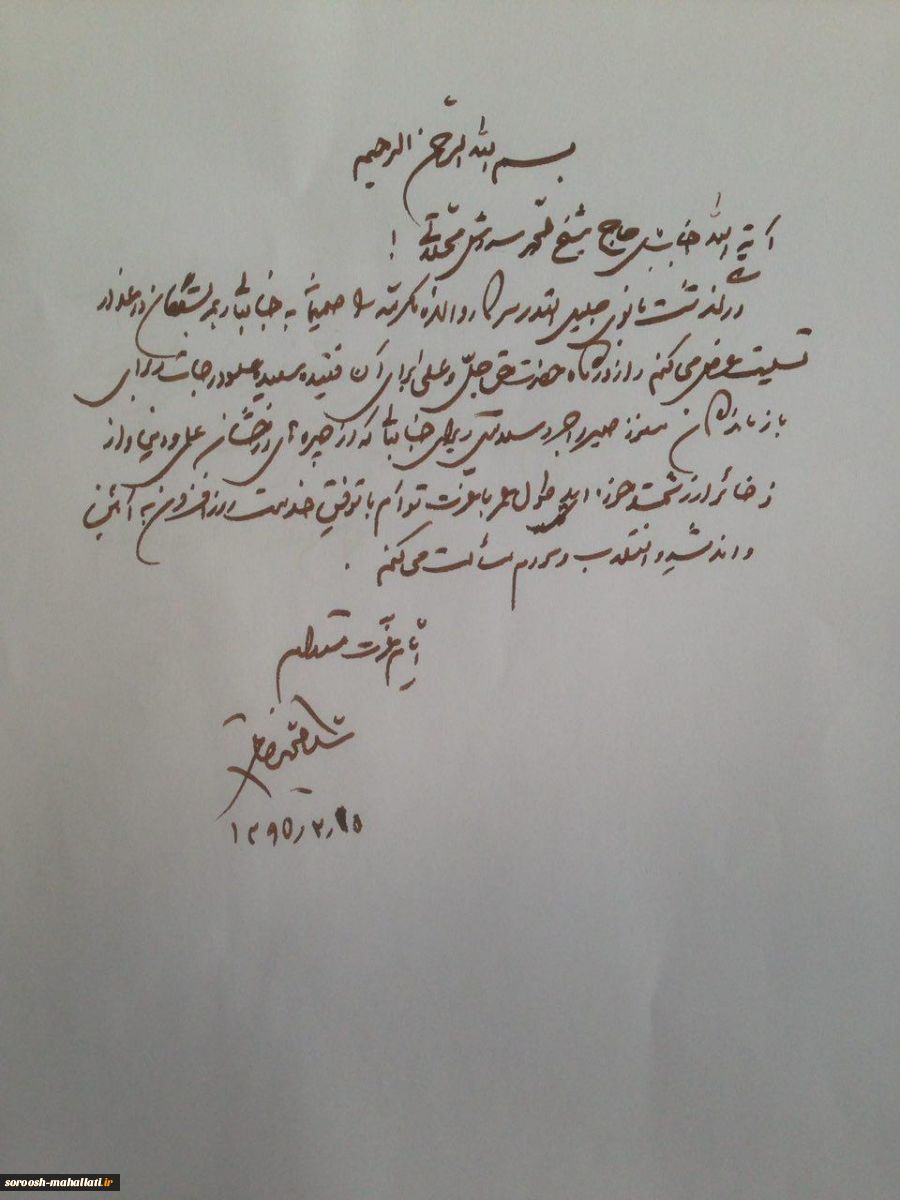 بسم الله الرحمن الرحیم
آیة الله جناب حاج شیخ محمد سروش محلاتی !
درگذشت بانوی جلیل القدر سرکار والده مکرمه را صمیمانه به جنابعالی و بستگان داغدار
تسلیت عرض می کنم و از درگاه حضرت حق جلّ و علی برای آن فقیده سعیده علو درجات و برای
بازماندگان معزز صبر و اجر و سلامتی و برای جنابعالی که از چهره های درخشان علمی و دینی و از
ذخائر ارزشمند حوزه اید طول عمر با عزت توأم با توفیق خدمت روزافزون به آئین
و اندیشه و انقلاب و مردم مسألت می کنم .
ایام عزت مستدام
۱۳۹۵/۲/۱۵
soroosh-mahallati.ir